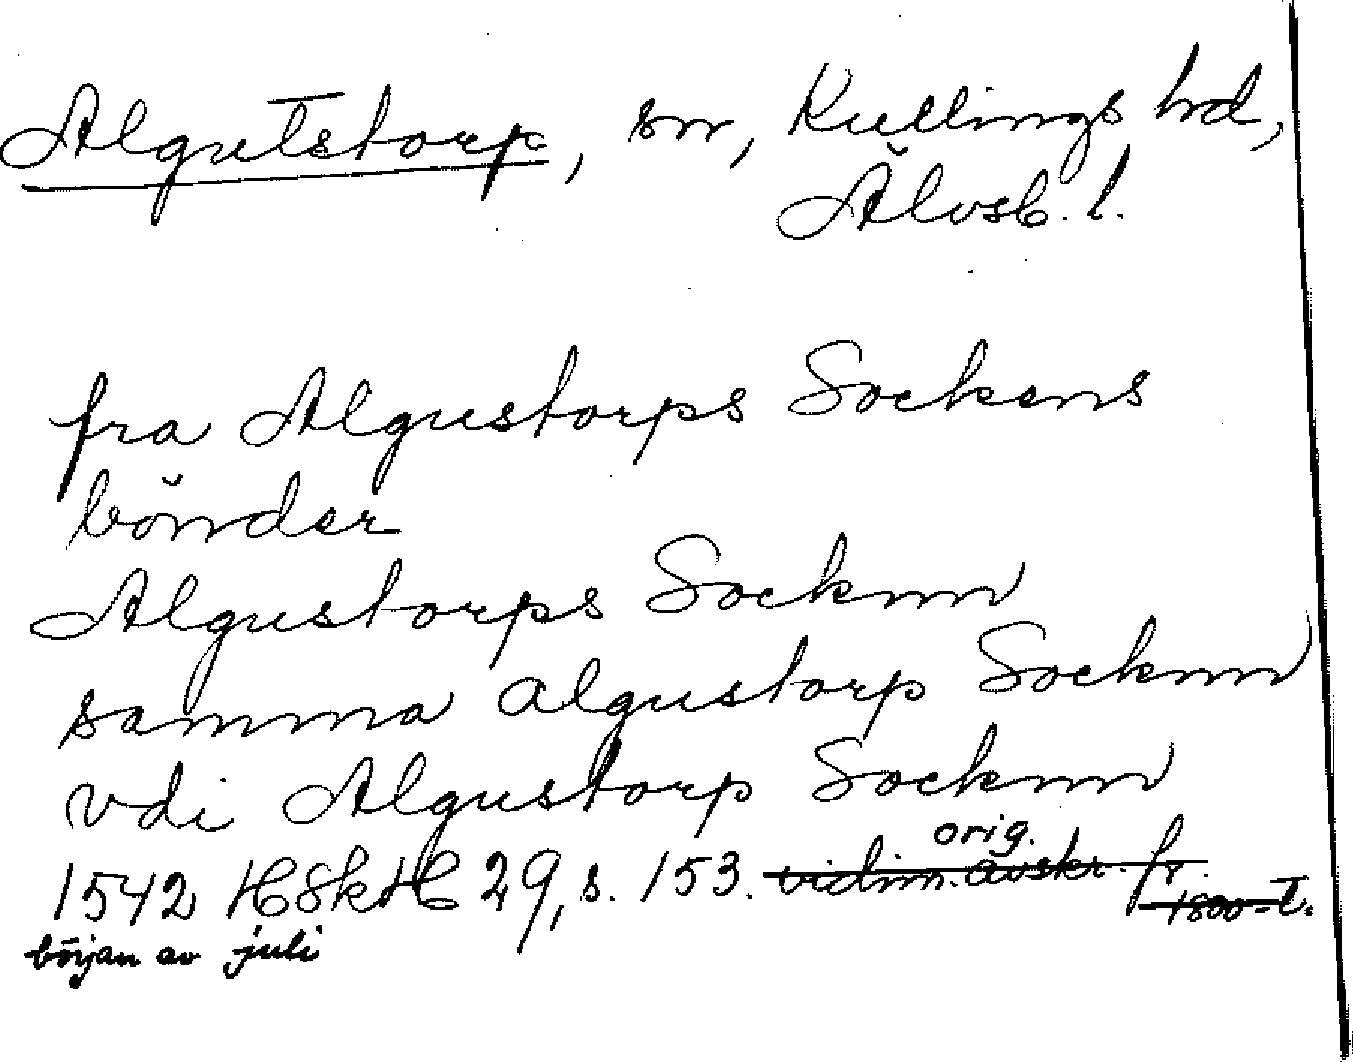 Algutstorp, sn, Kullings hd,
Älvsb. l.
fra Algustorps Sockens
bönder
Algustorps Socknn
samma algustorp Socknn
vdi Algustorp Socknn
orig.
1542 HSkH 29, s. 153. vidim. avskr. fr. 1800-t.
början av juli